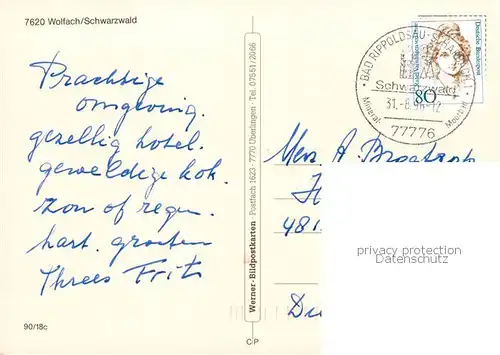 7620 Wolfach/Schwarzwald
Prachtige
omgeving.
gezellig hotel.
geweldige kok.
zon of regen.
hart. groeten
Threes Frits
90/18c
Werner-Bildpostkarten Postfach 1623 · 7770 Überlingen · Tel. 07551/2066
C/P
BAD RIPPOLDSAU-SCHAPBACH
Schwarzwald
31.-8.
-12
Mineral-
Moorbad
77776
Deutsche Bundespost
80
Mevr. A.
H
481
Du
privacy protection
Datenschutz